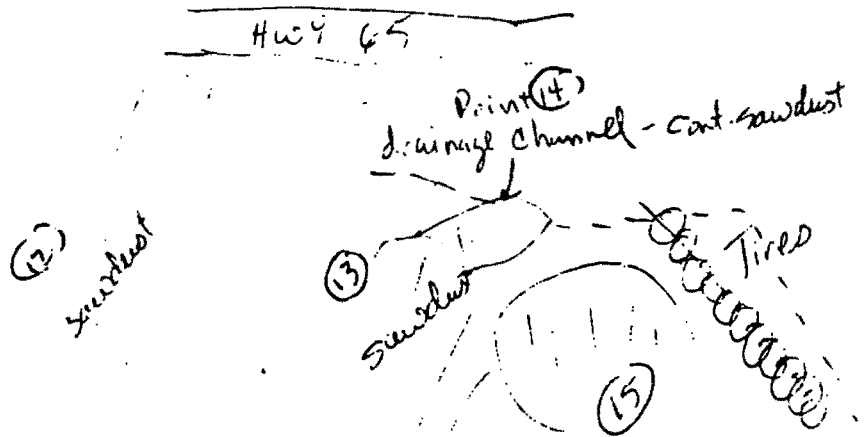 Hwy 65
Print 14
drainage channel - cont. sawdust
12
sawdust
13
sawdust
Tires
15